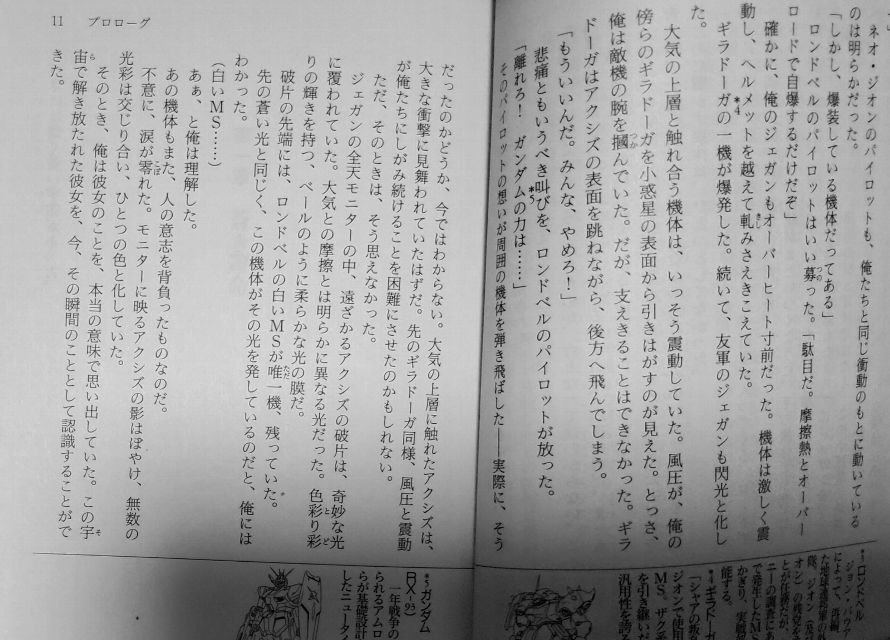 ネオ・ジオンのパイロットも、俺たちと同じ衝動のもとに動いている
のは明らかだった。
「しかし、爆装している機体だってある」
ロンドベルのパイロットはいい募った。「駄目だ。摩擦熱とオーバー
ロードで自爆するだけだぞ」
確かに、俺のジェガンもオーバーヒート寸前だった。機体は激しく震
動し、ヘルメットを越えて軋みさえきこえていた。
ギラドーガの一機が爆発した。続いて、友軍のジェガンも閃光と化し
た。
大気の上層と触れ合う機体は、いっそう震動していた。風圧が、俺の
傍らのギラドーガを小惑星の表面から引きはがすのが見えた。とっさ、
俺は敵機の腕を摑んでいた。だが、支えきることはできなかった。ギラ
ドーガはアクシズの表面を跳ねながら、後方へ飛んでしまう。
「もういいんだ。みんな、やめろ!」
悲痛ともいうべき叫びを、ロンドベルのパイロットが放った。
「離れろ! ガンダムの力は……」
そのパイロットの想いが周囲の機体を弾き飛ばした――実際に、そう
*3 ロンドベル
*4 ギラドー
「シャアの叛
ジオンで使
MS。ザク
を引き継い
汎用性を誇
11 プロローグ
だったのかどうか、今ではわからない。大気の上層に触れたアクシズは、
大きな衝撃に見舞われていたはずだ。先のギラドーガ同様、風圧と震動
が俺たちにしがみ続けることを困難にさせたのかもしれない。
ただ、そのときは、そう思えなかった。
ジェガンの全天モニターの中、遠ざかるアクシズの破片は、奇妙な光
に覆われていた。大気との摩擦とは明らかに異なる光だった。色彩り彩
りの輝きを持つ、ベールのように柔らかな光の膜だ。
破片の先端には、ロンドベルの白いMSが唯一機、残っていた。
先の蒼い光と同じく、この機体がその光を発しているのだと、俺には
わかった。
(白いMS……)
あぁ、と俺は理解した。
あの機体もまた、人の意志を背負ったものなのだ。
不意に、涙が零れた。モニターに映るアクシズの影はぼやけ、無数の
光彩は交じり合い、ひとつの色と化していた。
そのとき、俺は彼女のことを、本当の意味で思い出していた。この宇
宙で解き放たれた彼女を、今、その瞬間のこととして認識することがで
きた。
*5 ガンダム
RX-93)
一年戦争の
られるアムロ
らが基礎設計
したニュータイ